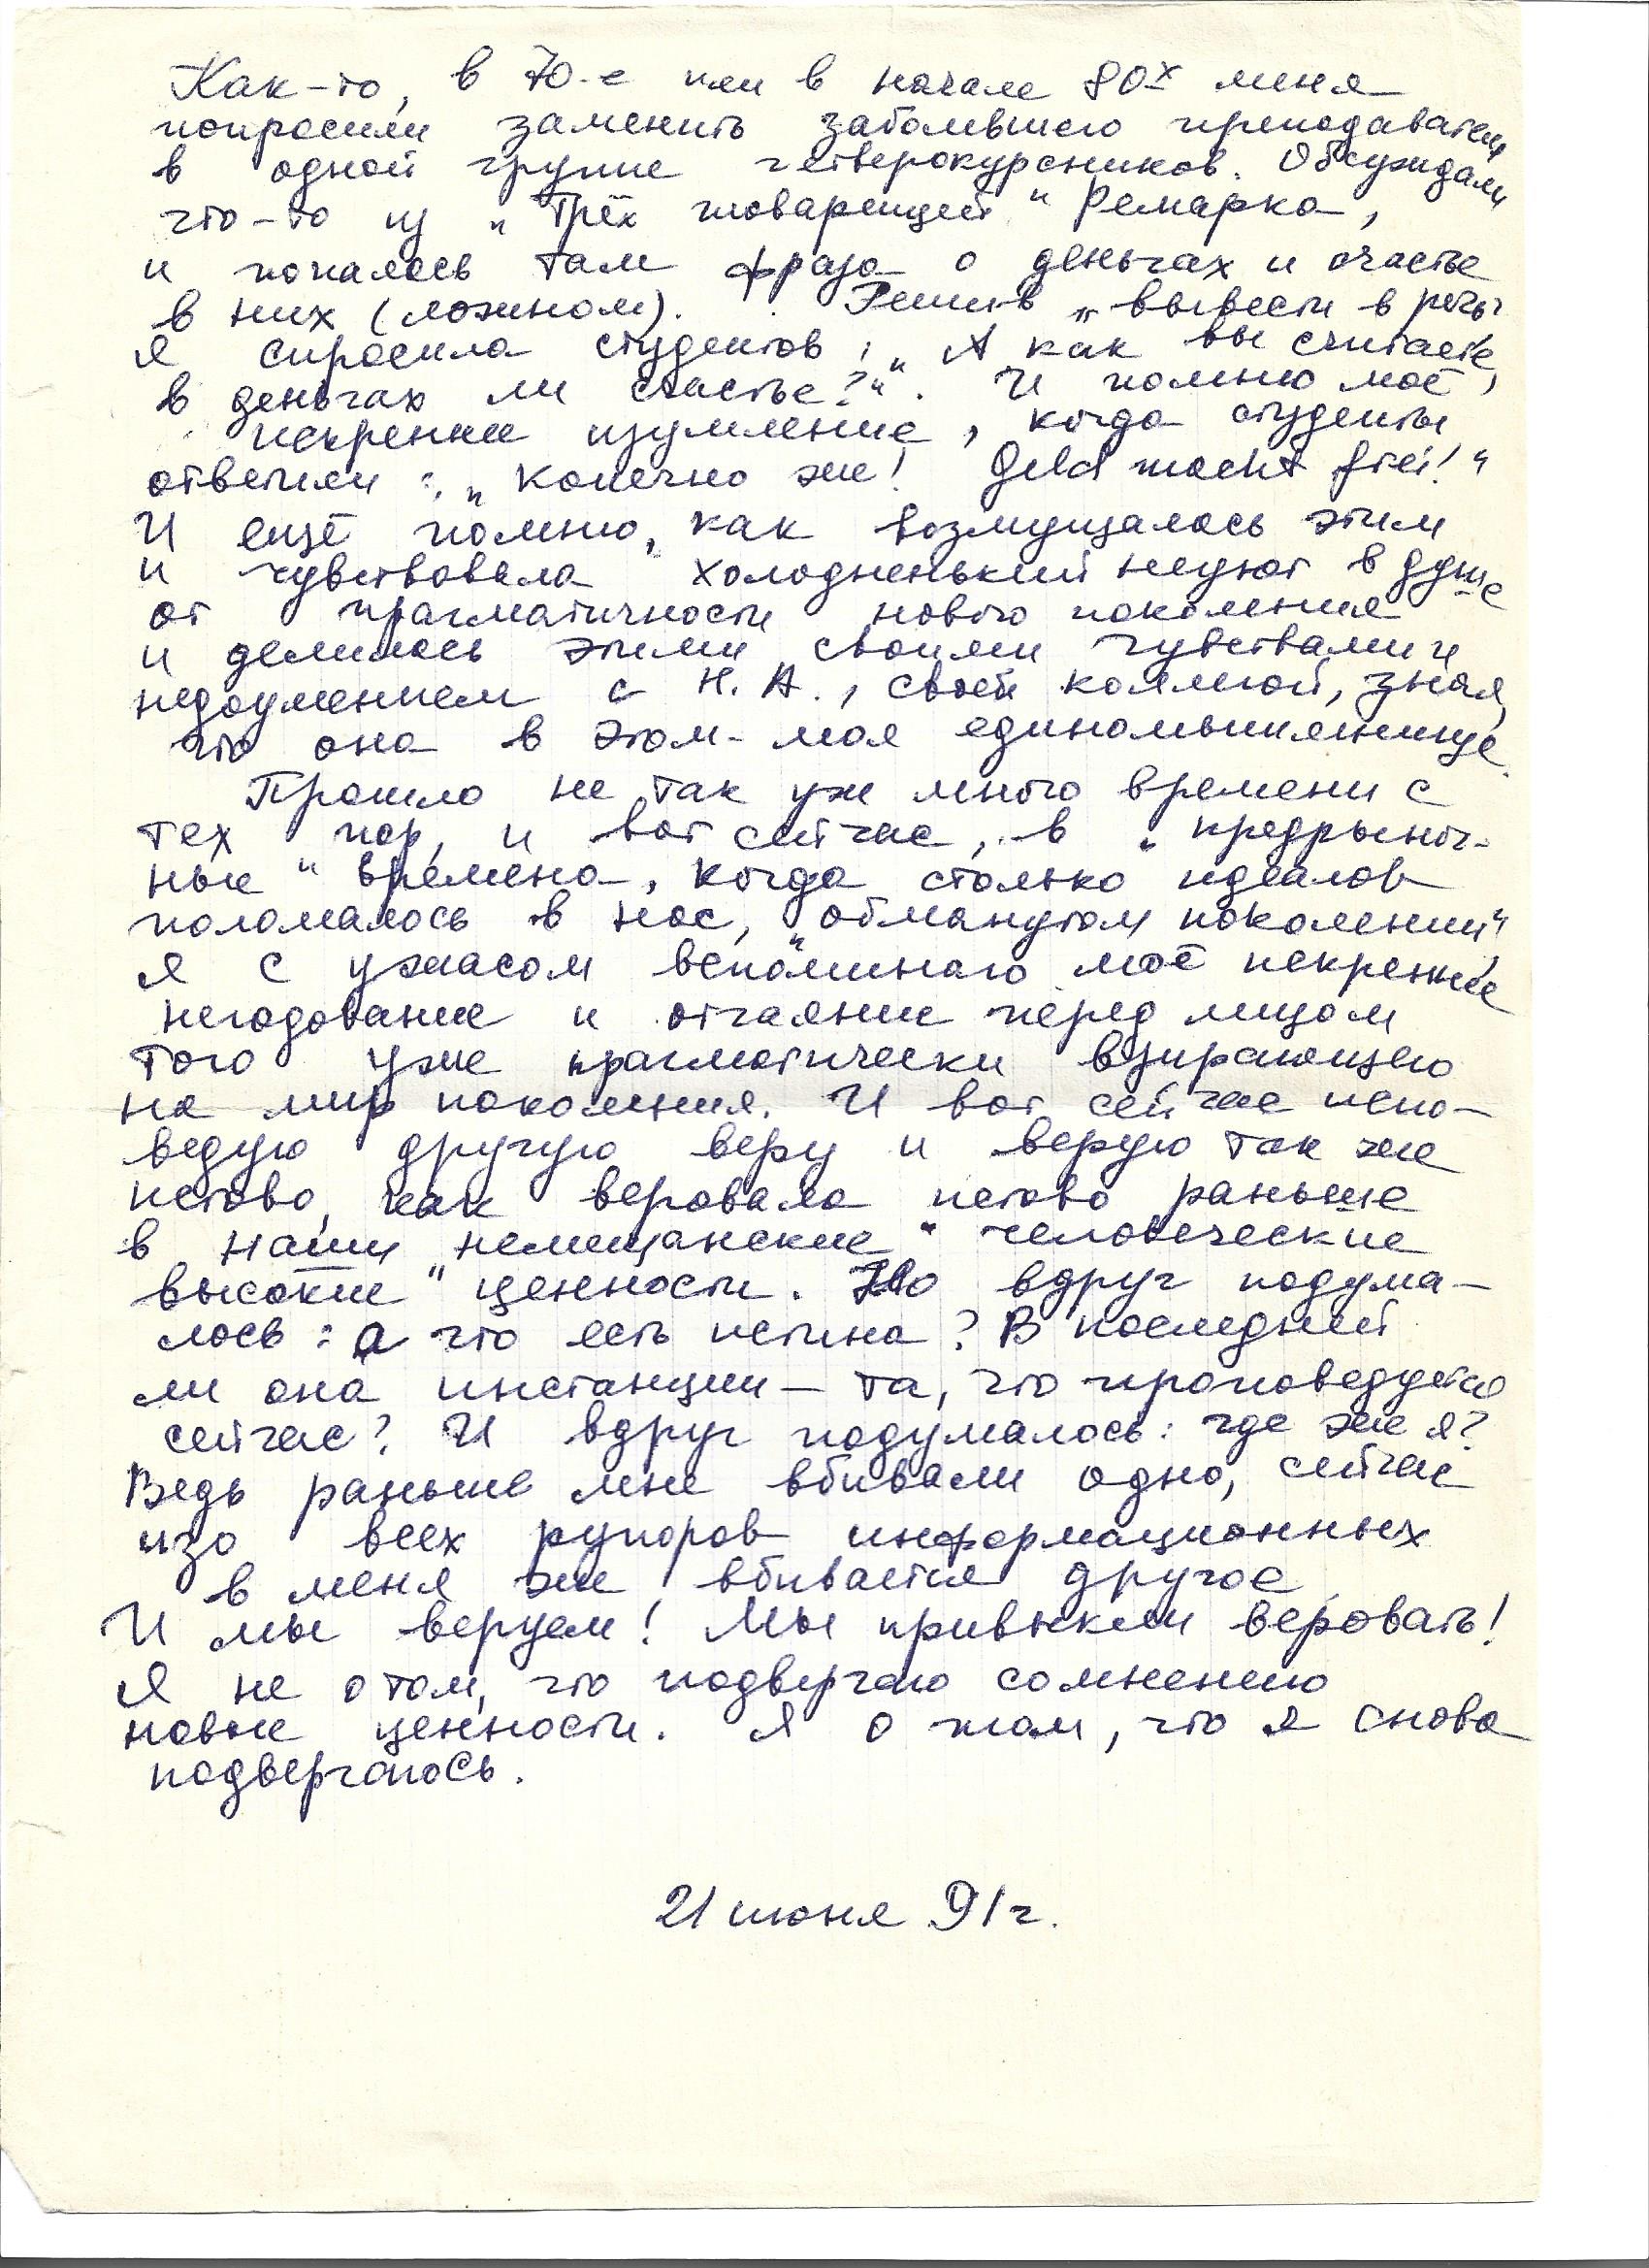 Как-то, в 70-е или в начале 80х меня
попросили заменить заболевшего преподавателя
в одной группе четверокурсников. Обсуждали
что-то из „Трёх товарищей“ Ремарка,
и попалась там фраза о деньгах и счастье
в них (ложном). Решив „вывести в речь“
я спросила студентов: „А как вы считаете,
в деньгах ли счастье?“. И помню моё
искреннее изумление, когда студенты
ответили: „Конечно же! Geld macht frei!“
И ещё помню, как возмущалась этим
и чувствовала холодненький неуют в душе
от прагматичности нового поколения
и делилась этими своими чувствами и
недоумением с Н. А., своей коллегой, зная,
что она в этом - моя единомышленница.
Прошло не так уж много времени с
тех пор, и вот сейчас, в „предрыноч-
ные“ времена, когда столько идеалов
поломалось в нас, „обманутом поколении“,
я с ужасом вспоминаю моё искреннее
негодование и отчаяние перед лицом
того уже прагматически взирающего
на мир поколения. И вот сейчас испо-
ведую другую веру и верую так же
истово, как веровала истово раньше
в наши „немещанские“ человеческие
высокие“ ценности. Но вдруг подума-
лось: а что есть истина? В последней
ли она инстанции - та, что проповедуется
сейчас? И вдруг подумалось: где же я?
Ведь раньше мне вбивали одно, сейчас
изо всех рупоров информационных
в меня же вбивается другое
И мы веруем! Мы привыкли веровать!
Я не о том, что подвергаю сомнению
новые ценности. Я о том, что я снова
подвергаюсь.
21 июня 91г.